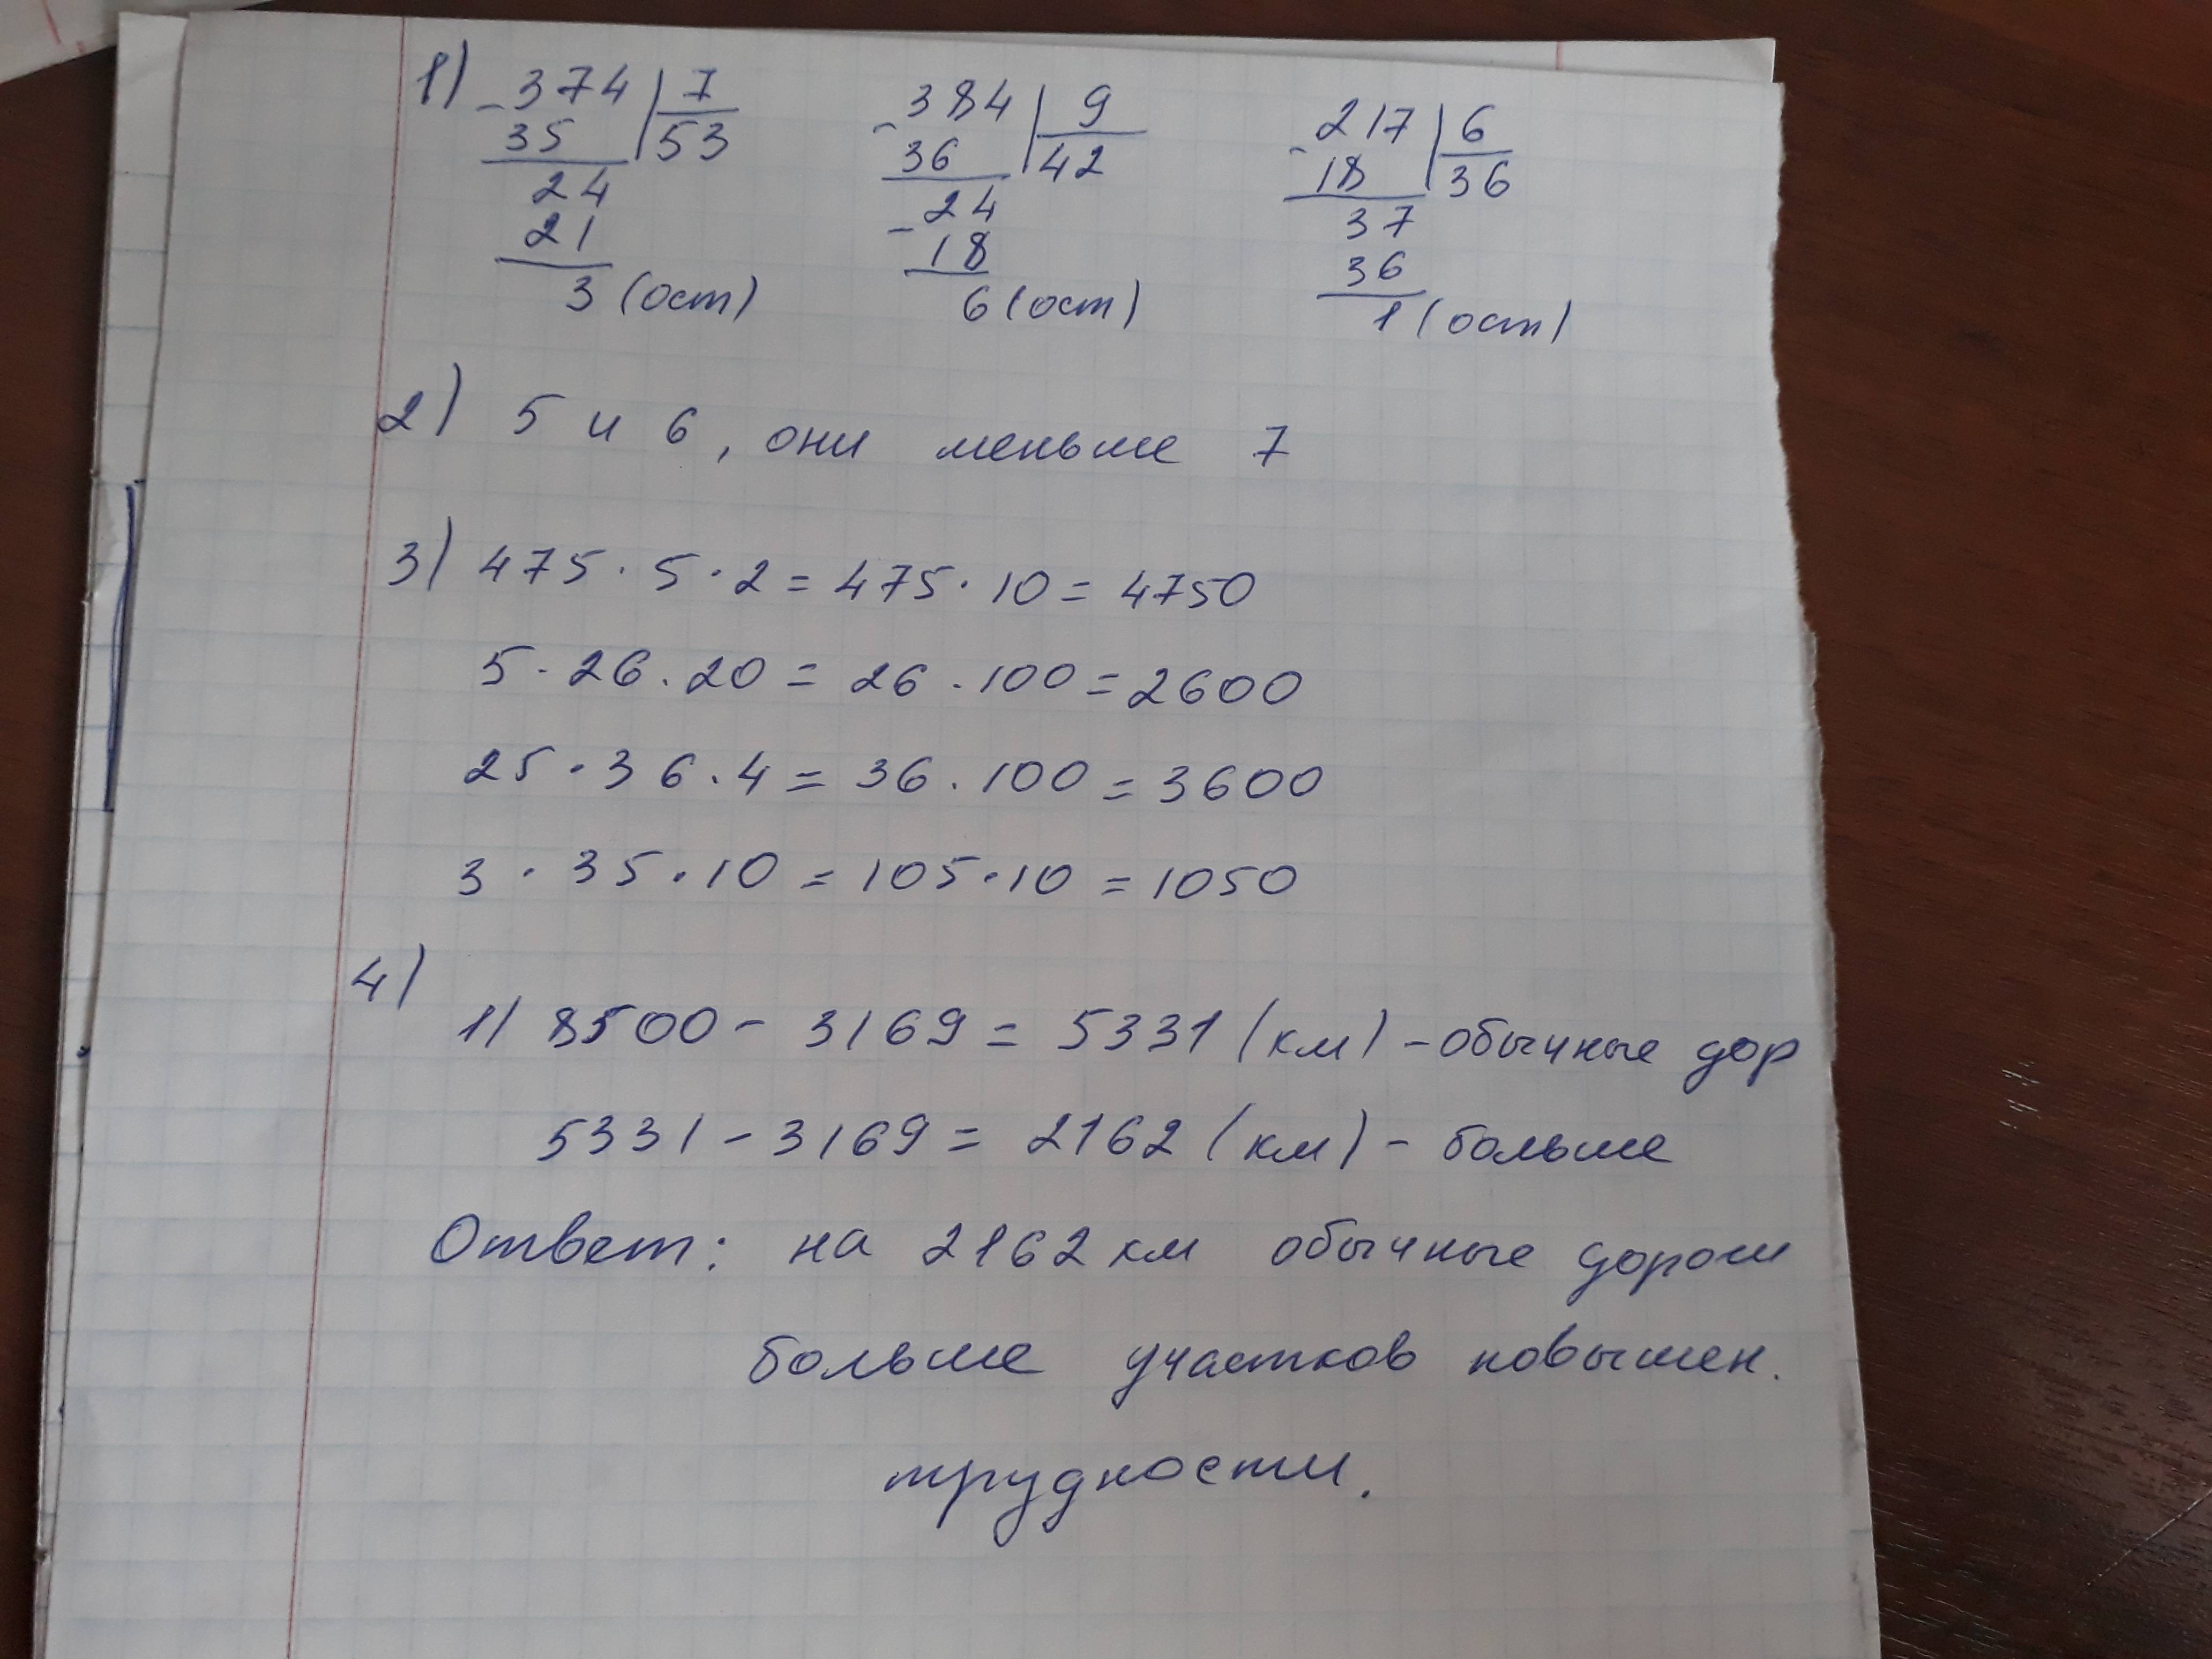 1) - 374 | 7   - 384 | 9   - 217 | 6
35 | 53   36 | 42   18 | 36
24   - 24   37
21   18   36
3 (ост)   6 (ост)   1 (ост)
2) 5 и 6, они меньше 7
3) 475 · 5 · 2 = 475 · 10 = 4750
5 · 26 · 20 = 26 · 100 = 2600
25 · 36 · 4 = 36 · 100 = 3600
3 · 35 · 10 = 105 · 10 = 1050
4)
1) 8500 - 3169 = 5331 (км) - обычные дор
5331 - 3169 = 2162 (км) - больше
Ответ: на 2162 км обычные дороги
больше участков повышен.
трудности.